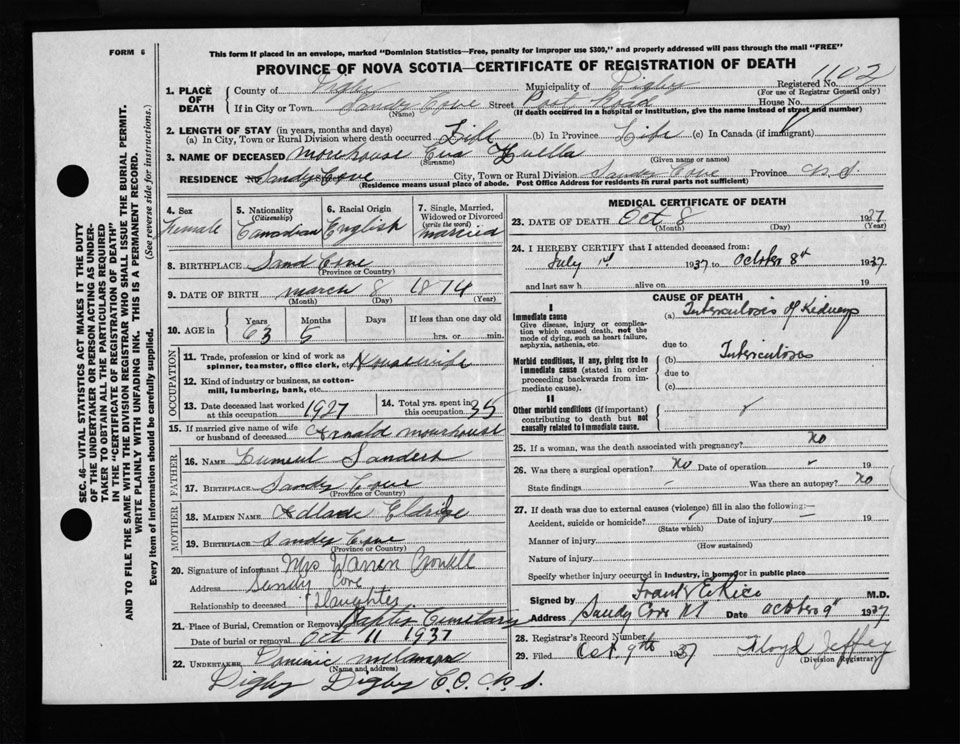 FORM 6
This form if placed in an envelope, marked "Dominion Statistics—Free, penalty for improper use $300," and properly addressed will pass through the mail "FREE"
PROVINCE OF NOVA SCOTIA—CERTIFICATE OF REGISTRATION OF DEATH
Registered No. 1102
(For use of Registrar General only)
1. PLACE OF DEATH
County of Digby Municipality of Digby
If in City or Town Sandy Cove Street Post Road House No.
(Name) (If death occurred in a hospital or institution, give the name instead of street and number)
2. LENGTH OF STAY (in years, months and days)
(a) In City, Town or Rural Division where death occurred Life (b) In Province Life (c) In Canada (if immigrant)
3. NAME OF DECEASED Morehouse Eva Luella
(Surname) (Given name or names)
RESIDENCE No. Sandy Cove City, Town or Rural Division Sandy Cove Province N.S.
(Residence means usual place of abode. Post Office Address for residents in rural parts not sufficient)
4. Sex Female
5. Nationality (Citizenship) Canadian
6. Racial Origin English
7. Single, Married, Widowed or Divorced (write the word) Married
8. BIRTHPLACE Sand Cove
(Province or Country)
9. DATE OF BIRTH March 8 1874
(Month) (Day) (Year)
10. AGE in Years 63 Months 5 Days If less than one day old hrs. or min.
OCCUPATION
11. Trade, profession or kind of work as spinner, teamster, office clerk, etc. Housewife
12. Kind of industry or business, as cotton-mill, lumbering, bank, etc.
13. Date deceased last worked at this occupation 1937
14. Total yrs. spent in this occupation 35
15. If married give name of wife or husband of deceased Arnold Morehouse
FATHER
16. NAME Sanders
17. BIRTHPLACE Sandy Cove
(Province or Country)
MOTHER
18. MAIDEN NAME Eldridge
19. BIRTHPLACE Sandy Cove
(Province or Country)
20. Signature of informant Mrs Warren Crowell
Address Sandy Cove
Relationship to deceased Daughter
21. Place of Burial, Cremation or Removal Baptis Cemetary
Date of burial or removal Oct 11 1937
22. UNDERTAKER Dominic
(Name and address)
Digby Digby C.O. N.S.
MEDICAL CERTIFICATE OF DEATH
23. DATE OF DEATH Oct 8 1937
(Month) (Day) (Year)
24. I HEREBY CERTIFY that I attended deceased from:
July 1st 1937 to October 8th 1937
and last saw h alive on 19
CAUSE OF DEATH
I
Immediate cause
Give disease, injury or complication which caused death, not the mode of dying, such as heart failure, asphyxia, asthenia, etc.
(a) Tuberculosis of Kidneys
due to
Morbid conditions, if any, giving rise to immediate cause (stated in order proceeding backwards from immediate cause).
(b) Tuberculosis
due to
(c)
II
Other morbid conditions (if important) contributing to death but not causally related to immediate cause.
25. If a woman, was the death associated with pregnancy? no
26. Was there a surgical operation? No Date of operation 19
State findings Was there an autopsy? no
27. If death was due to external causes (violence) fill in also the following:—
Accident, suicide or homicide? Date of injury 19
(State which)
Manner of injury
(How sustained)
Nature of injury
Specify whether injury occurred in Industry, in home or in public place
Signed by Frank E Rice M.D.
Address Sandy Cove NS Date October 9th 1937
28. Registrar's Record Number
29. Filed Oct. 9th 1937 Lloyd Jeffrey
(Division Registrar)
SEC. 46—VITAL STATISTICS ACT MAKES IT THE DUTY
OF THE UNDERTAKER OR PERSON ACTING AS UNDER-
TAKER TO OBTAIN ALL THE PARTICULARS REQUIRED
IN THE "CERTIFICATE OF REGISTRATION OF DEATH"
AND TO FILE THE SAME WITH THE DIVISION REGISTRAR WHO SHALL ISSUE THE BURIAL PERMIT.
WRITE PLAINLY WITH UNFADING INK. THIS IS A PERMANENT RECORD.
Every item of information should be carefully supplied. (See reverse side for instructions.)